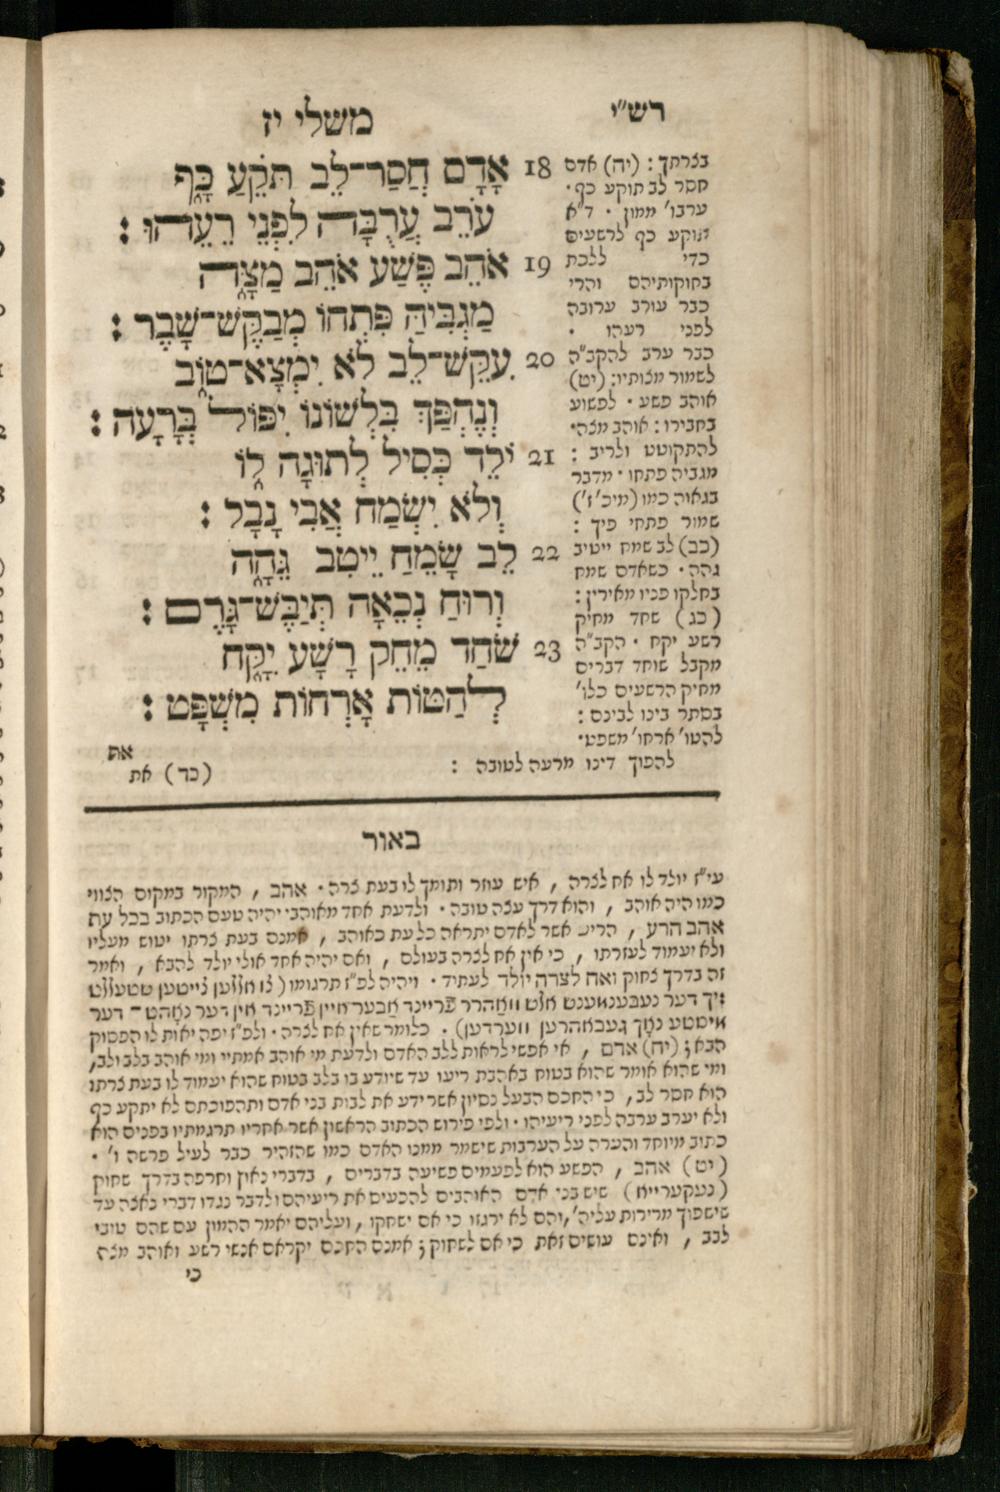 משלי יז
רש״י
18 אָדָם חֲסַר־לֵב תֹּקֵעַ כָּף
עֹרֵב עֲרֻבָּה לִפְנֵי רֵעֵהוּ :
19 אֹהֵב פֶּשַׁע אֹהֵב מַצָּה
מַגְבִּיהַּ פִּתְחוֹ מְבַקֶּשׁ־שָׁבֶר :
20 עִקֶּשׁ־לֵב לֹא יִמְצָא־טוֹב
וְנֶהְפַּךְ בִּלְשׁוֹנוֹ יִפּוֹל בְּרָעָה :
21 יֹלֵד כְּסִיל לְתוּגָה לוֹ
וְלֹא יִשְׂמַח אֲבִי נָבָל :
22 לֵב שָׂמֵחַ יֵיטִב גֵּהָה
וְרוּחַ נְכֵאָה תְּיַבֶּשׁ־גָּרֶם :
23 שֹׁחַד מֵחֵק רָשָׁע יִקָּח
לְהַטּוֹת אָרְחוֹת מִשְׁפָּט :
את
בצרתך : (יח) אדם
חסר לב תוקע כף ·
ערבו׳ ממון · ד״א
תוקע כף לרשעים
כדי ללכת
בחוקותיהם והרי
כבר עורב ערובה
לפני רעהו ·
כבר ערב להקב״ה
לשמור מצותיו : (יט)
אוהב פשע · לפשוע
בחבירו : אוהב מצה ·
להתקוטט ולריב :
מגביה פתחו · מדבר
בגאוה כמו (מיכ׳ ז׳)
שמור פתחי פיך :
(כב) לב שמח ייטיב
גהה · כשאדם שמח
בחלקו פניו מאירין :
(כג) שחד מחיק
רשע יקח · הקב״ה
מקבל שוחד דברים
מחיק הרשעים כלו׳
בסתר בינו לבינם :
להטו׳ ארחו׳ משפט ·
להפוך דינו מרעה לטובה :
(כד) את
באור
עי״ז יולד לו אח לצרה , איש עוזר ותומך לו בעת צרה · אהב , המקור במקום הצווי
כמו היה אוהב , והוא דרך עצה טובה · ולדעת אחד מאוהבי יהיה טעם הכתוב בכל עת
אהב הרע , הריע אשר לאדם יתראה כל עת כאוהב , אמנם בעת צרתו יטוש מעליו
ולא יעמוד לעזרתו , כי אין אח לצרה בעולם , ואם יהיה אחד אולי יולד להבא , ואמר
זה בדרך צחוק ואח לצרה יולד לעתיד · ויהיה לפ״ז תרגומו (צו אללען צייטען שטעללט
זיך דער נעבענמענש אלס וואהרר פריינד אבער איין פריינד אין דער נאהט ־ דער
מיסטע נאך געבאהרען ווערדען) · כלומר שאין אח לצרה · ולפ״ז יפה יאות לו הפסוק
הבא ; (יח) אדם , אי אפשי לראות ללב האדם ולדעת מי אוהב אמתיי ומי אוהב בלב ולב ,
ומי שהוא אומר שהוא בטוח באהבת ריעו עד שיודע בו בלב בטוח שהוא יעמוד לו בעת צרתו
הוא חסר לב , כי החכם הבעל נסיון אשר ידע את לבות בני אדם ותהפוכתם לא יתקע כף
ולא יערב ערבה לפני ריעיהו · ולפי פירוש הכתוב הראשון אשר אחריו תרגמתיו בפנים הוא
כתיב מיוחד והערה על הערבות שישמר ממנו האדם כמו שהזהיר כבר לעיל פרשה ו׳ ·
(יט) אהב , הפשע הוא לפעמים פשיעה בדברים , בדברי נאוץ וחרפה בדרך שחוק
(נעקערייא) שיש בני אדם האוהבים להכעים את ריעיהם ולדבר נגדו דברי נאצה עד
שישפוך מרירות עליה׳ , והם לא ירגזו כי אם ישחקו , ועליהם יאמר ההמון עם שהם טובי
לבב , ואינם עושים זאת כי אם לשחוק ; אמנם החכם יקראם אנשי רשע ואוהב מצה
כי